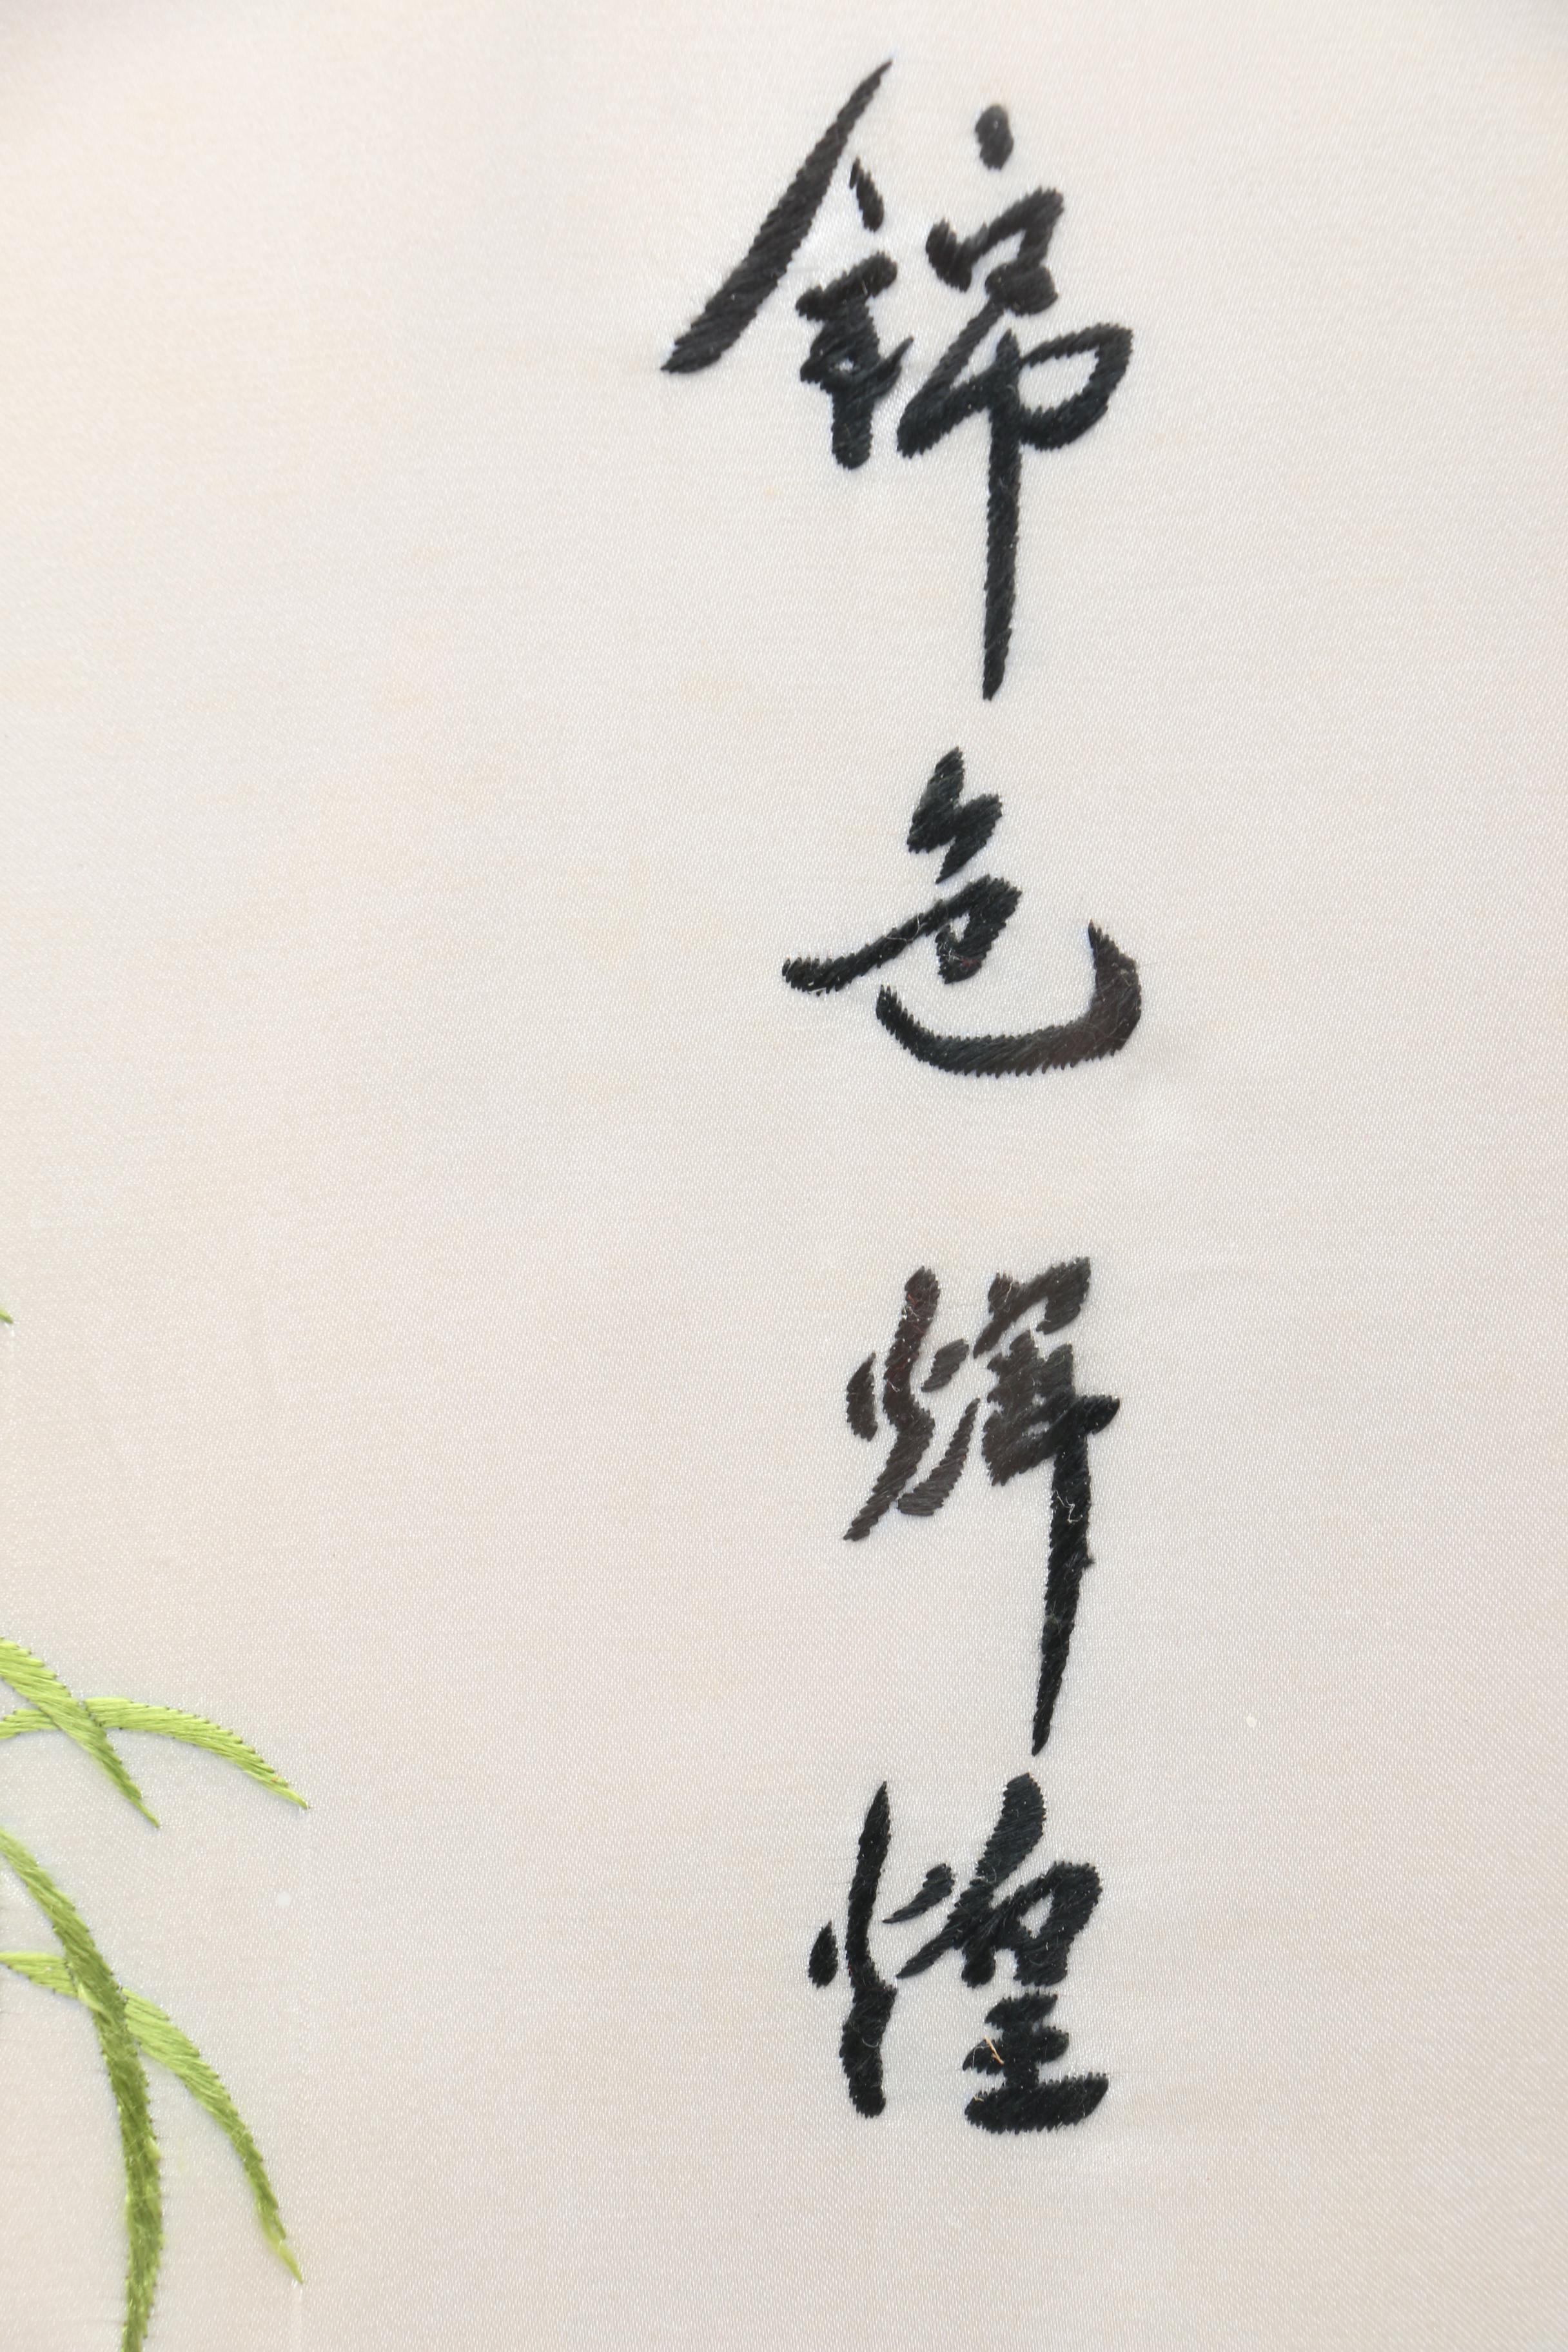 錦色輝煌